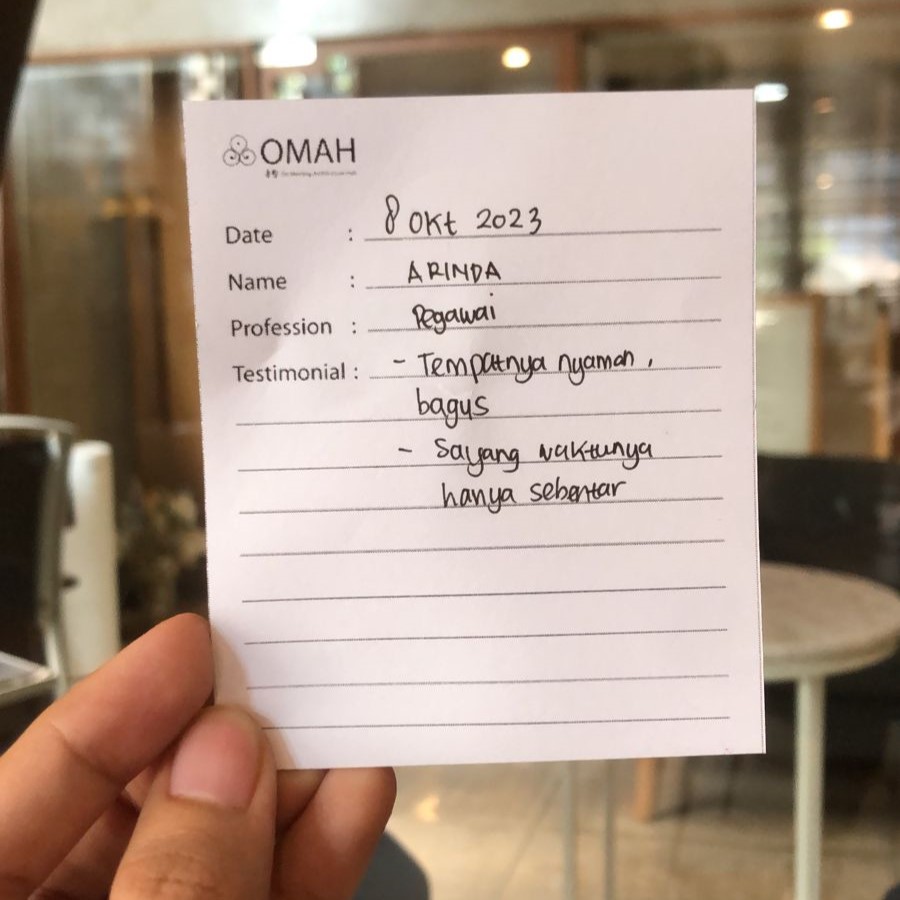 OMAH
Date : 8 Okt 2023
Name : ARINDA
Profession : Pegawai
Testimonial : - Tempatnya nyaman,
bagus
- Sayang waktunya
hanya sebentar